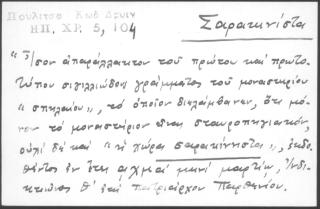 Πουλίτσα Κωδ Δρυϊν
ΗΠ. ΧΡ. 5, 104
Σαρακινίστα
"Ἴσον ἀπαράλλακτον τοῦ πρώτου καὶ πρωτο-
τύπου σιγιλλιώδους γράμματος τοῦ μοναστηρίου
"σπηλαίου", τὸ ὁποῖον διελάμβανεν, ὅτι μό-
νον τὸ μοναστήριον εἶναι σταυροπηγιακόν,
οὐχὶ δὲ καὶ "ἡ χώρα σαρακινίστα", ἐκδο-
θέντος ἐν ἔτει αχμαʹ μηνὶ μαρτίῳ, ἰνδι-
κτιῶνος θʹ ἐπὶ πατριάρχου Παρθενίου.